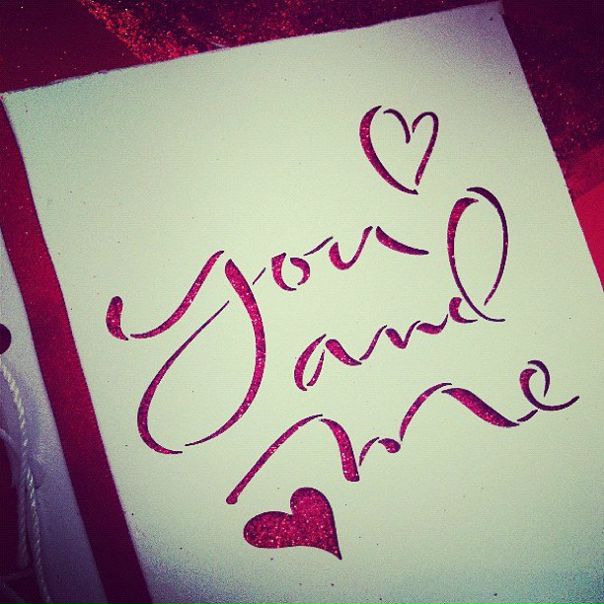 You
and
me